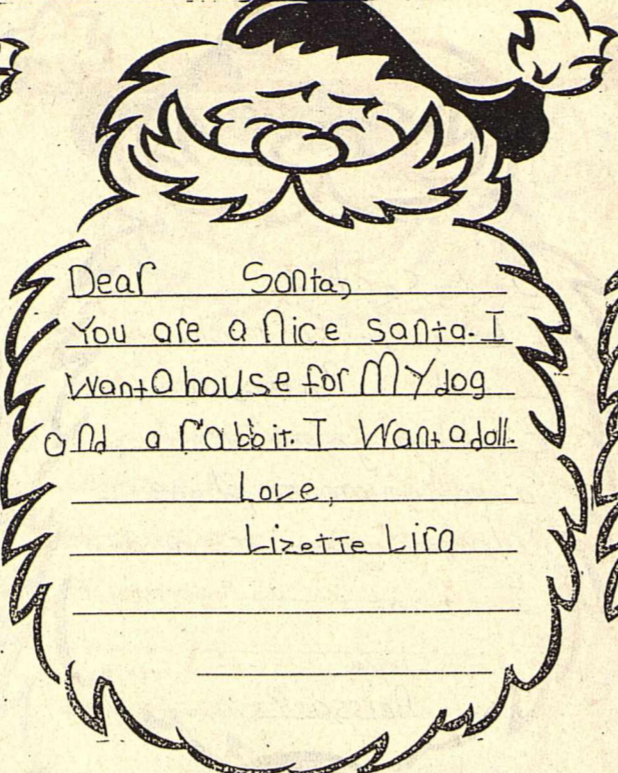 Dear Santa,
You are a nice santa. I
want a house for My dog
and a rabbit. I want a doll.
Love,
Lizette Lira